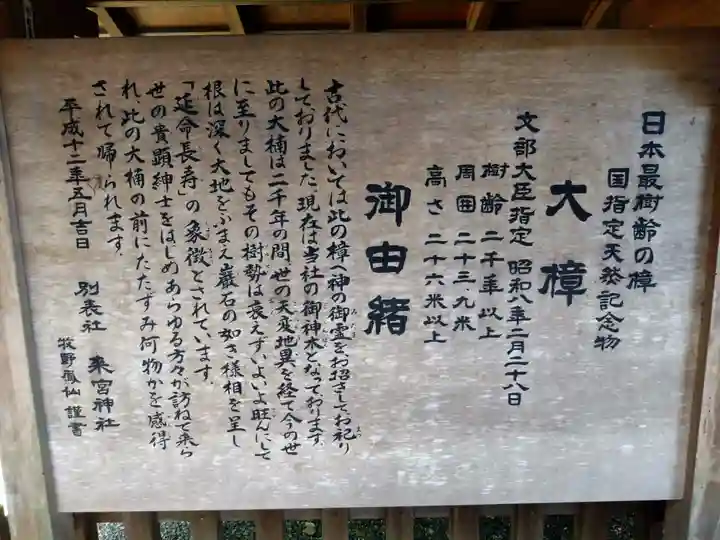 日本最樹齢の樟
国指定天然記念物
大樟
文部大臣指定 昭和八年二月二十八日
樹齢 二千年以上
周囲 二十三、九米
高さ 二十六米以上
御由緒
古代においては此の樟へ神の御霊をお招きしてお祀り
しておりました。現在は当社の御神木となっております。
此の大楠は二千年の間、世の天変地異を経て今の世
に至りましてもその樹勢は衰えず、いよいよ旺んにして
根は深く大地をふまえ巌石の如き様相を呈し
「延命長寿」の象徴とされています。
世の貴顕紳士をはじめあらゆる方々が訪ねて来ら
れ、此の大楠の前にたたずみ何物かを感得
されて帰られます。
平成十二年五月吉日
別表社 來宮神社
牧野 仙 謹書